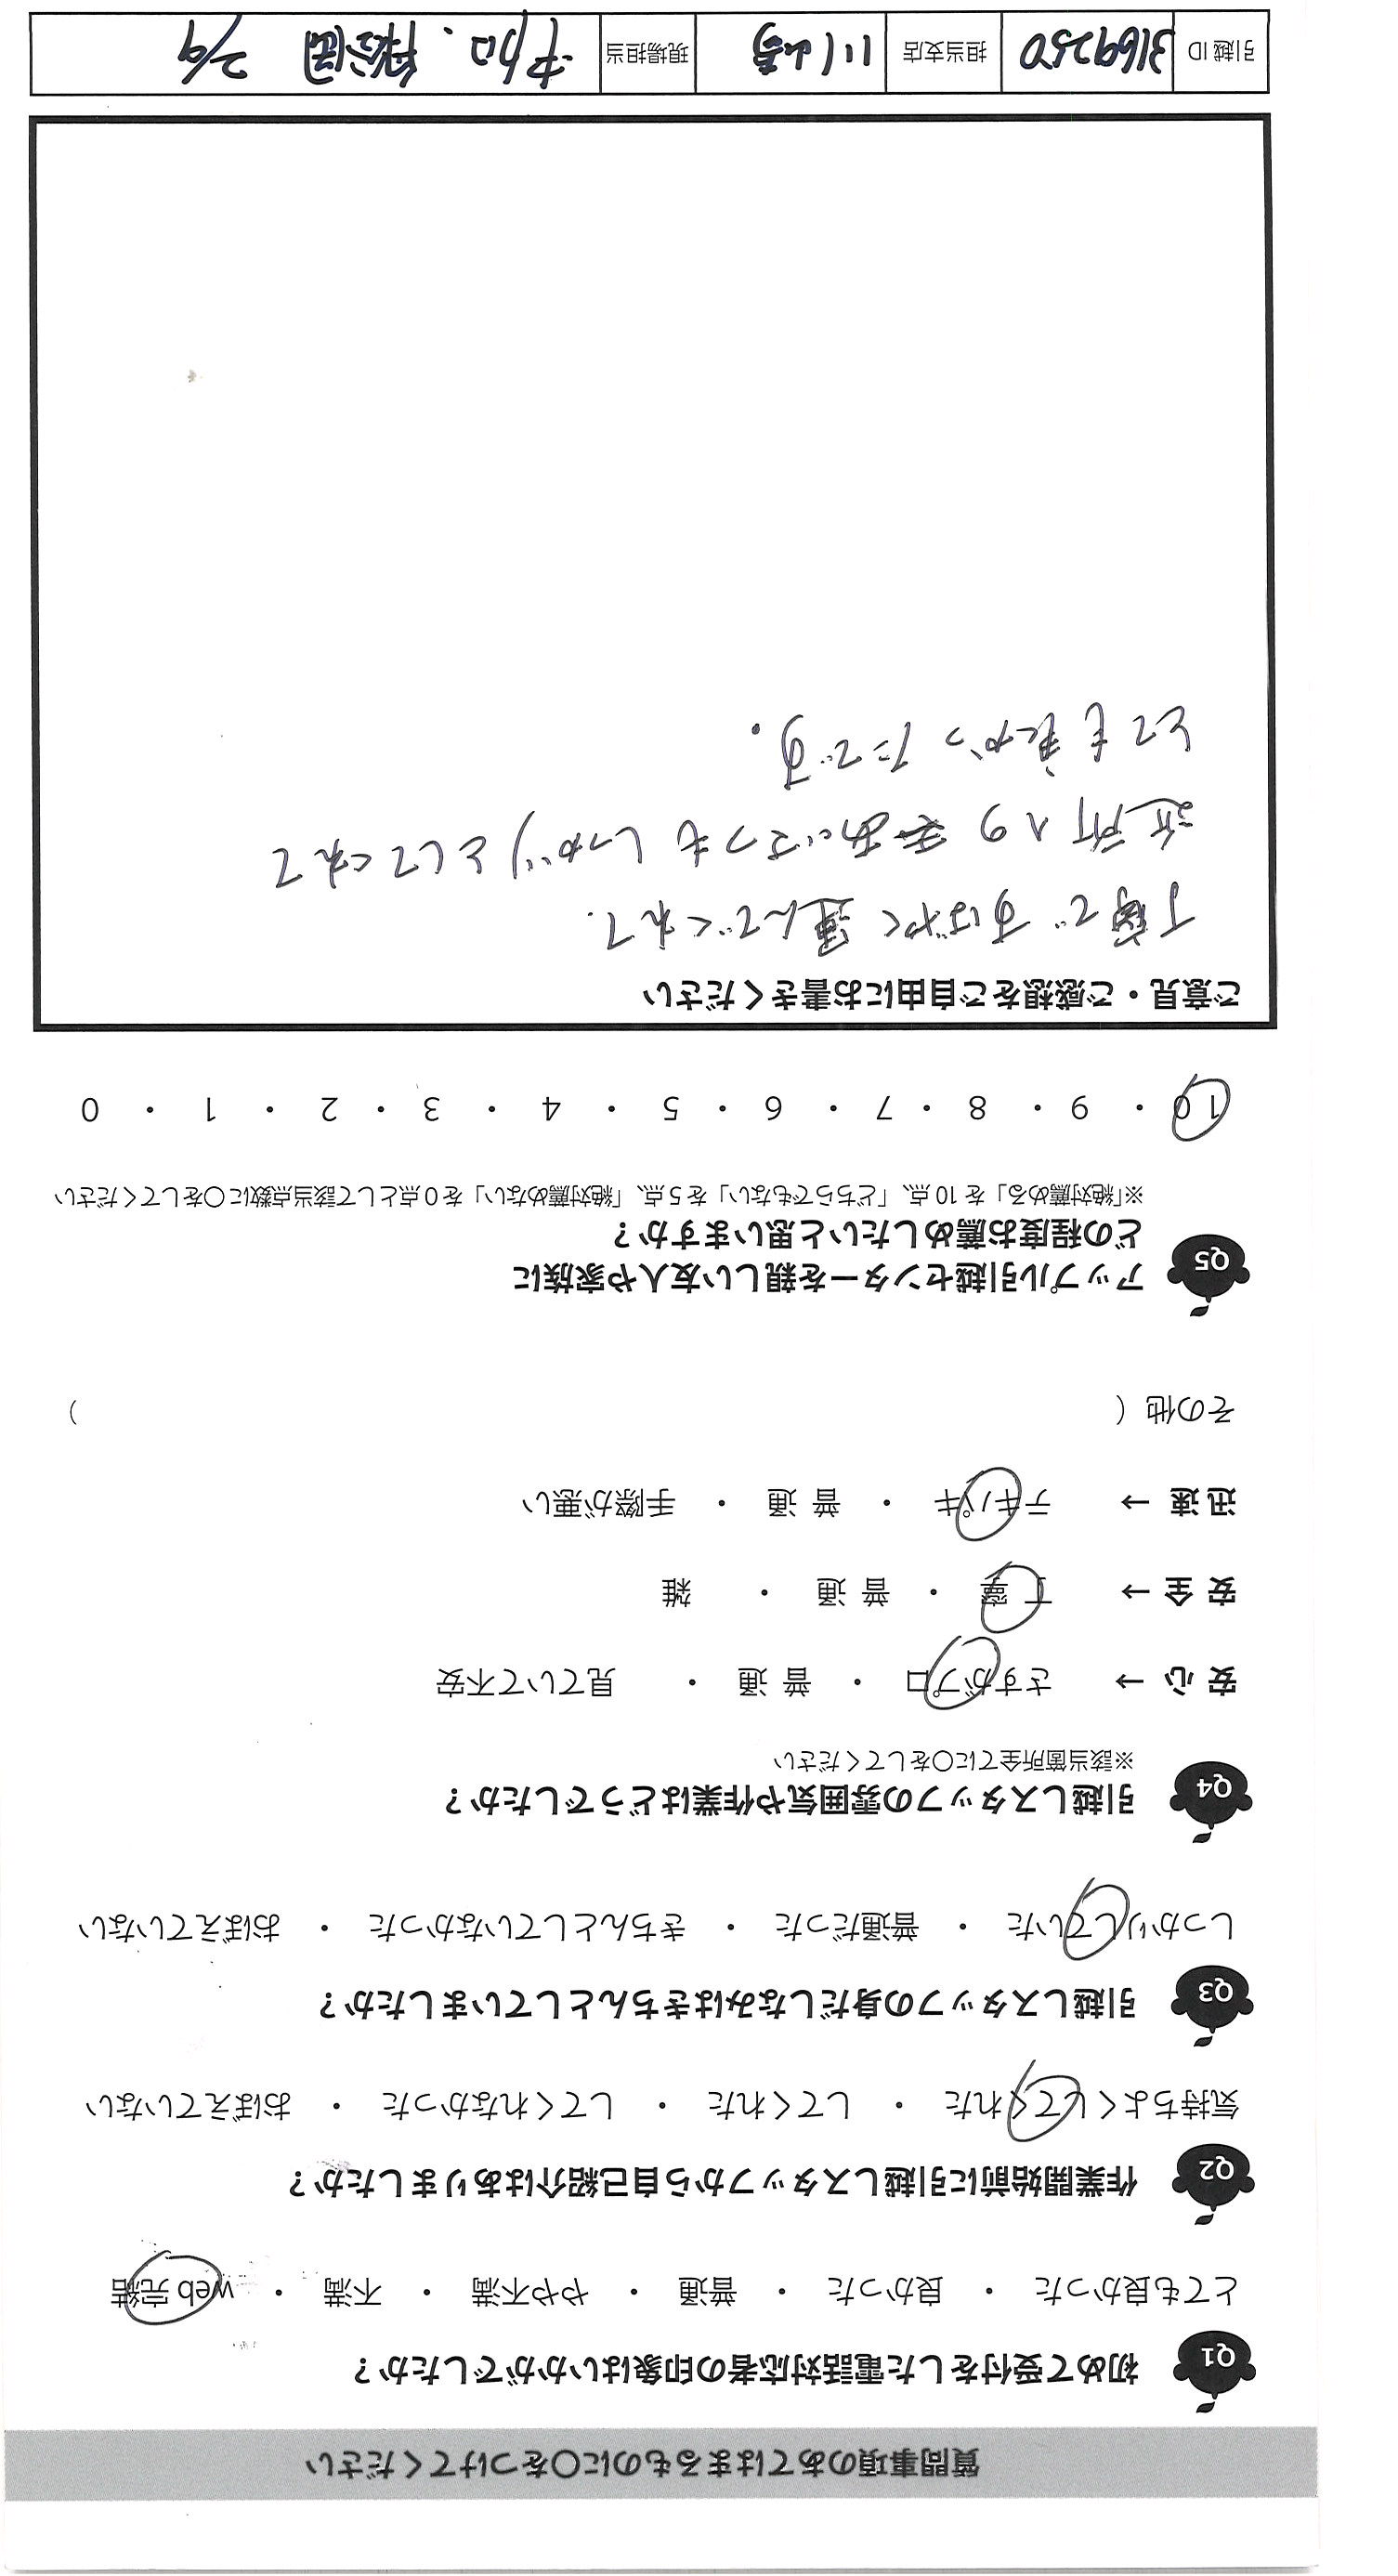 質問事項のあてはまるものに○をつけてください
Q1 初めて受付をした電話対応者の印象はいかがでしたか？
とても良かった ・ 良かった ・ 普通 ・ やや不満 ・ 不満 ・ web 完結
Q2 作業開始前に引越しスタッフから自己紹介はありましたか？
気持ちよくしてくれた ・ してくれた ・ してくれなかった ・ おぼえていない
Q3 引越しスタッフの身だしなみはきちんとしていましたか？
しっかりしていた ・ 普通だった ・ きちんとしていなかった ・ おぼえていない
Q4 引越しスタッフの雰囲気や作業はどうでしたか？
※該当箇所全てに○をしてください
安 心 → さすがプロ ・ 普 通 ・ 見ていて不安
安 全 → 丁 寧 ・ 普 通 ・ 雑
迅 速 → テキパキ ・ 普 通 ・ 手際が悪い
その他（ ）
Q5 アップル引越センターを親しい友人や家族に
どの程度お薦めしたいと思いますか？
※「絶対薦める」を 10 点、「どちらでもない」を 5 点、「絶対薦めない」を 0 点として該当点数に○をしてください
10 ・ 9 ・ 8 ・ 7 ・ 6 ・ 5 ・ 4 ・ 3 ・ 2 ・ 1 ・ 0
ご意見・ご感想をご自由にお書きください
丁寧で すばやく 運んでくれて、
近所への あいさつも しっかりとしてくれて
とても良かったです。
引越 ID 3169250 担当支店 川崎 現場担当 2/9